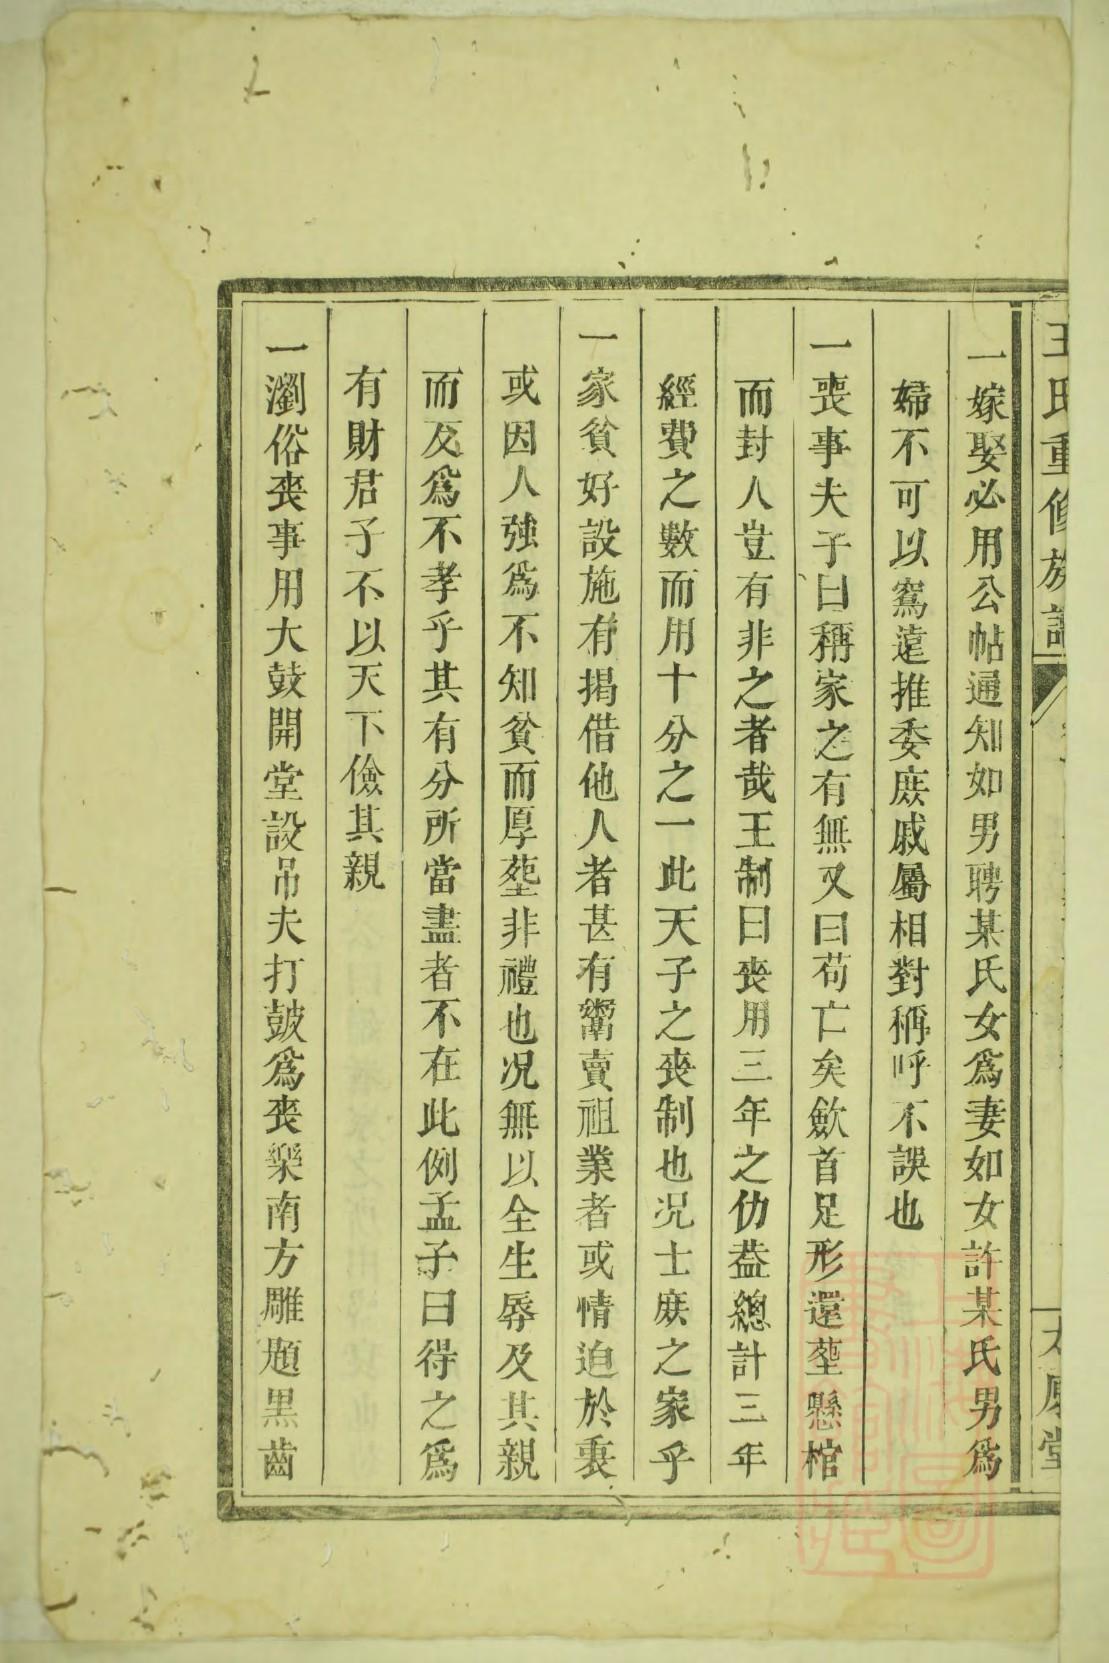 王氏重修族譜
太原堂
一嫁娶必用公帖通知如男聘某氏女爲妻如女許某氏男爲
婦不可以窵遠推委庶戚屬相對稱呼不誤也
一喪事夫子曰稱家之有無又曰苟亡矣歛首足形還塟懸棺
而封人豈有非之者哉王制曰喪用三年之仂葢總計三年
經費之數而用十分之一此天子之喪制也况士庶之家乎
一家貧好設施有揭借他人者甚有鬻賣祖業者或情迫於衷
或因人強爲不知貧而厚塟非禮也况無以全生辱及其親
而反爲不孝乎其有分所當盡者不在此例孟子曰得之爲
有財君子不以天下儉其親
一瀏俗喪事用大鼓開堂設吊夫打皷爲喪樂南方雕題黑齒